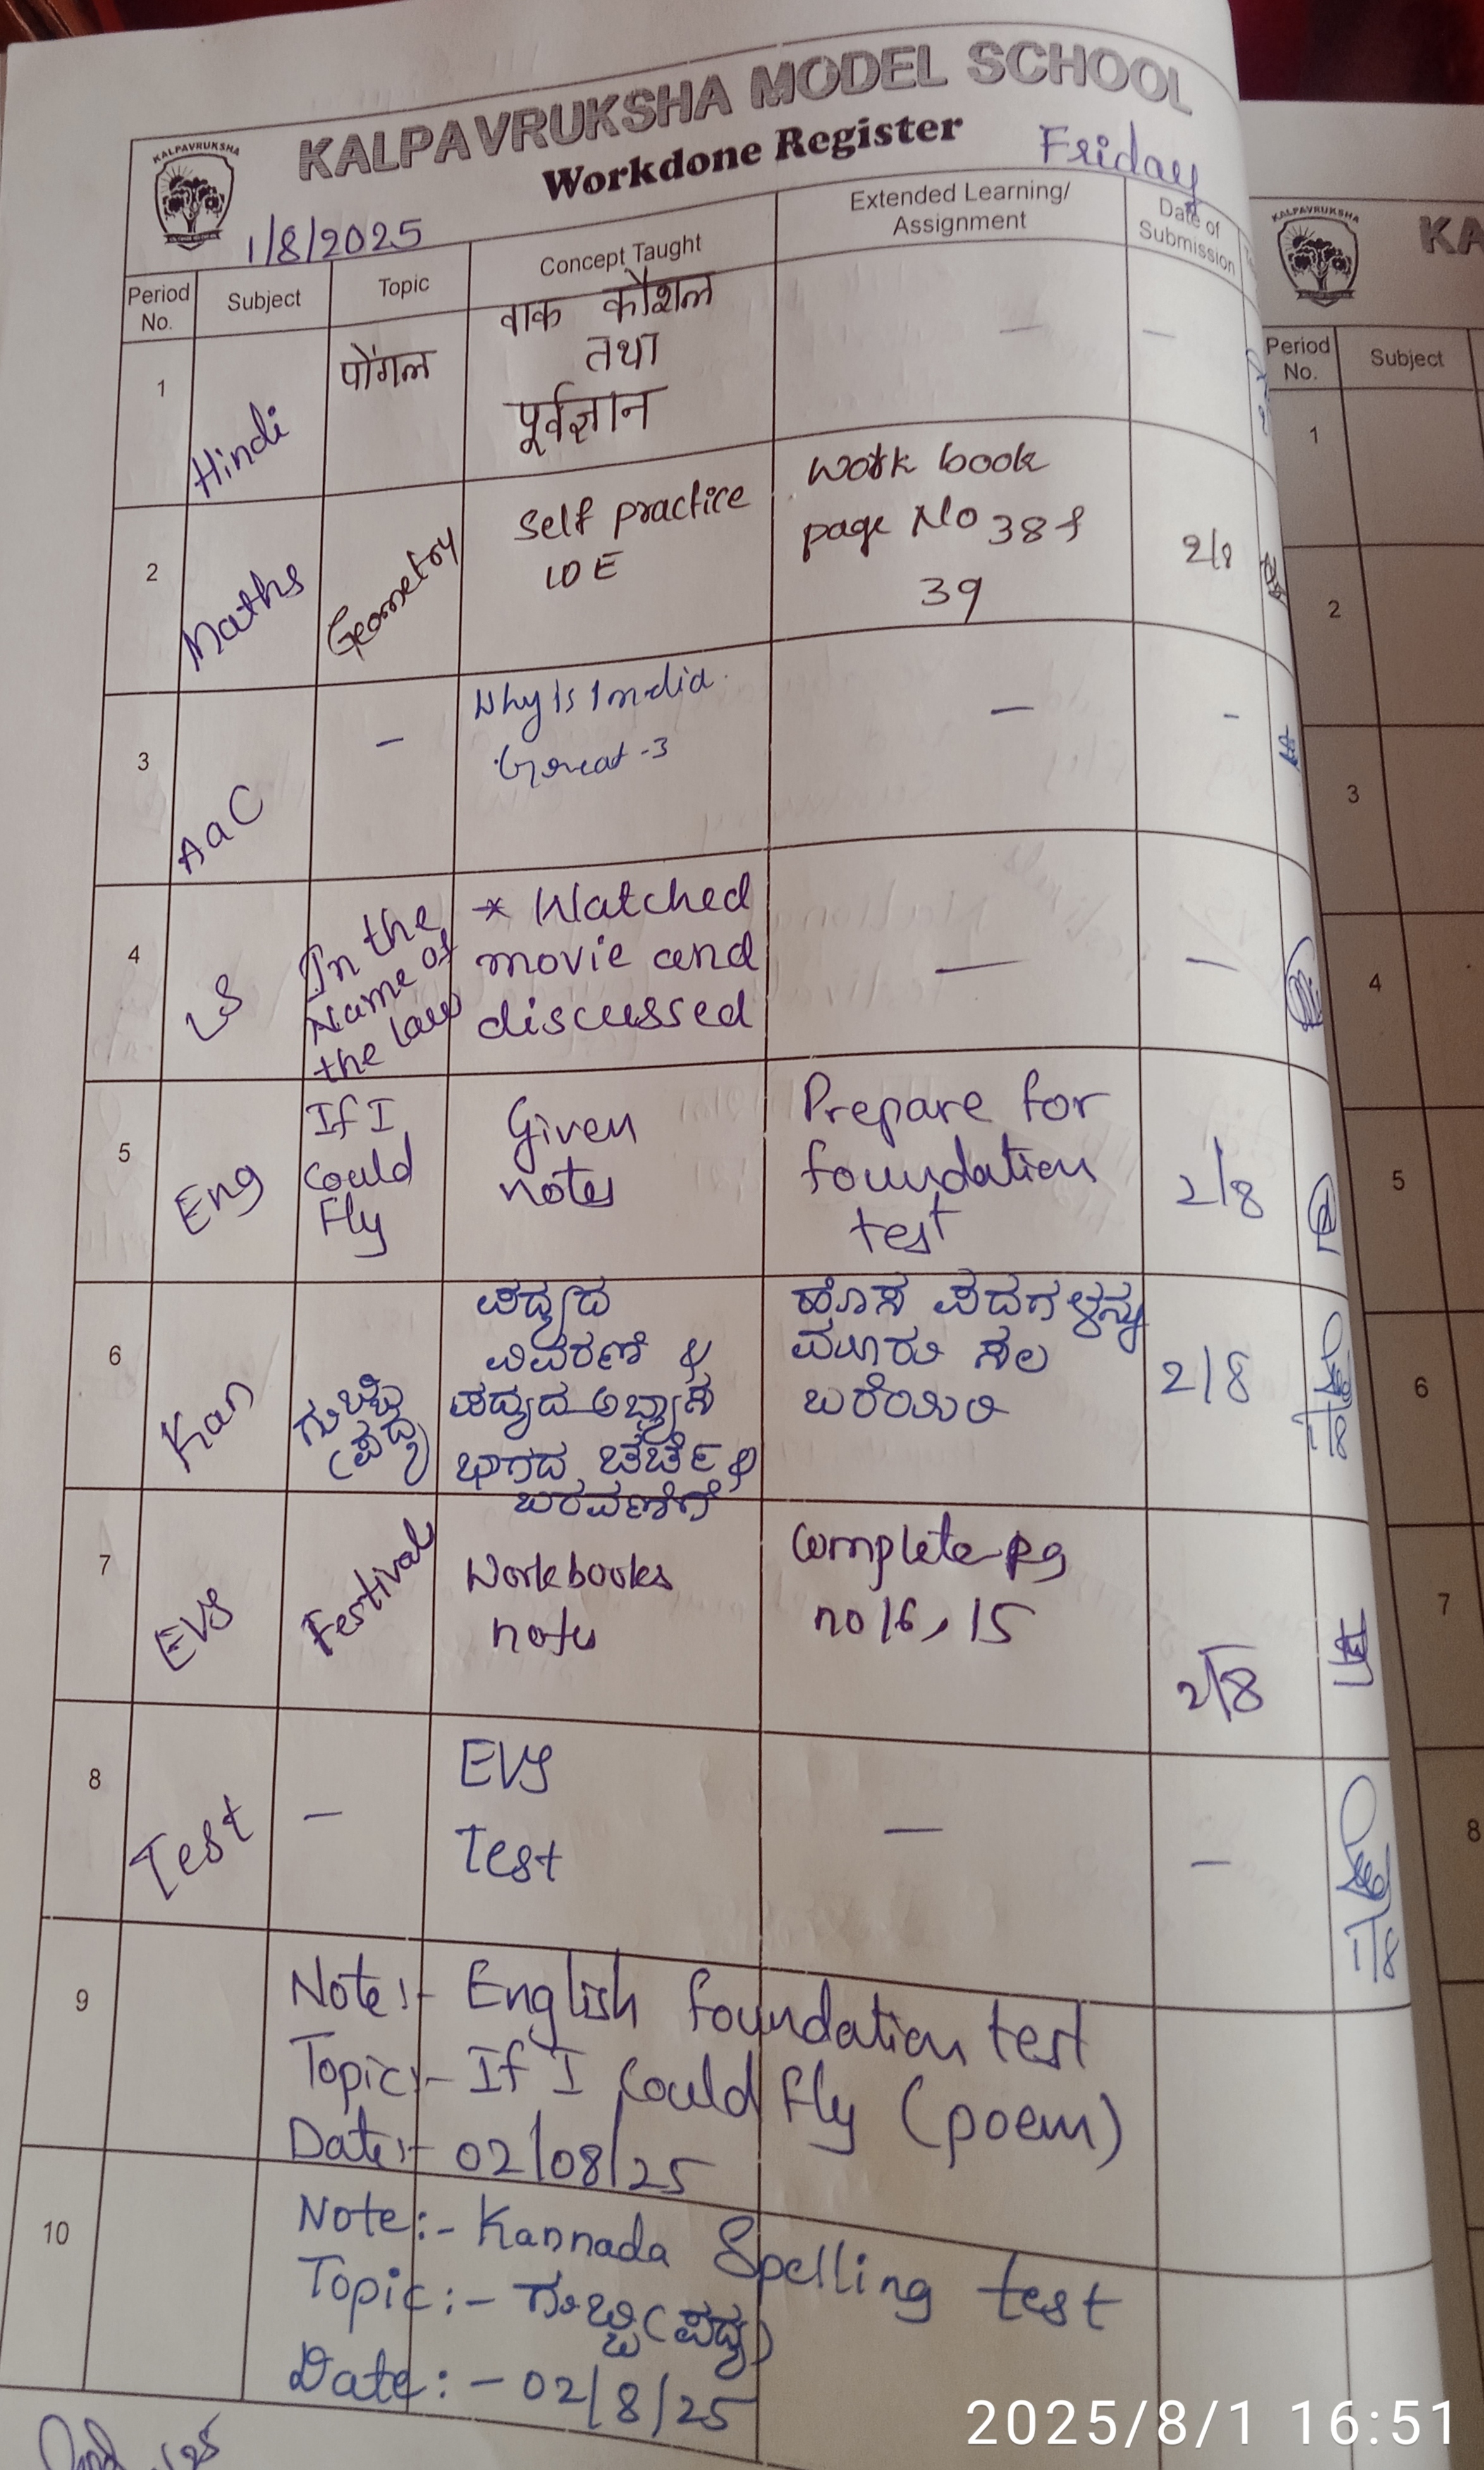 KALPAVRUKSHA
KALPAVRUKSHA MODEL SCHOOL
Workdone Register
Friday
1/8/2025
Period No.
Subject
Topic
Concept Taught
Extended Learning/
Assignment
Date of
Submission
1
Hindi
पोंगल
वाक कौशल
तथा
पूर्वज्ञान
—
—
2
Maths
Geometry
Self practice
10 E
Work book
page No 38 &
39
2/8
3
AaC
—
Why is India
Great -3
—
-
4
LS
In the
Name of
the law
* Watched
movie and
discussed
—
—
5
Eng
If I
Could
Fly
Given
notes
Prepare for
foundation
test
2/8
6
Kan
ಗುಬ್ಬಿ
(ಪದ್ಯ)
ಪದ್ಯದ
ವಿವರಣೆ &
ಪದ್ಯದ ಅಭ್ಯಾಸ
ಭಾಗದ ಚರ್ಚೆ &
ಬರವಣಿಗೆ
ಹೊಸ ಪದಗಳನ್ನು
ಮೂರು ಸಲ
ಬರೆಯಿರಿ
2/8
1/8
7
EVS
Festival
Workbooks
notes
Complete pg
no 16, 15
2/8
8
Test
—
EVS
Test
—
—
1/8
9
Note:- English foundation test
Topic:- If I Could fly (poem)
Date:- 02/08/25
10
Note:- Kannada Spelling test
Topic:- ಗುಬ್ಬಿ (ಪದ್ಯ)
Date:- 02/8/25
KALPAVRUKSHA
KA
Period No.
Subject
1
2
3
4
5
6
7
8
2025/8/1 16:51